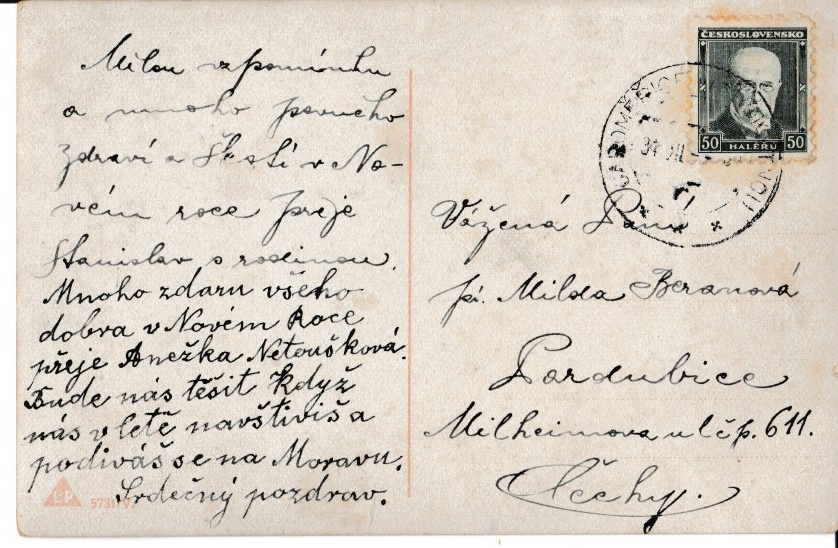 Milou vzpomínku
a mnoho pevného
zdraví a štěstí v No-
vém roce přeje
Stanislav s rodinou.
Mnoho zdaru všeho
dobra v Novém Roce
přeje Anežka Netoušková.
Bude nás těšit když
nás v letě navštivíš a
podíváš se na Moravu.
Srdečný pozdrav.
ČESKOSLOVENSKO
50 HALÉŘŮ 50
Vážená Paní
pí. Milda Beranová
Pardubice
Milheimova ul čp. 611.
Čechy.